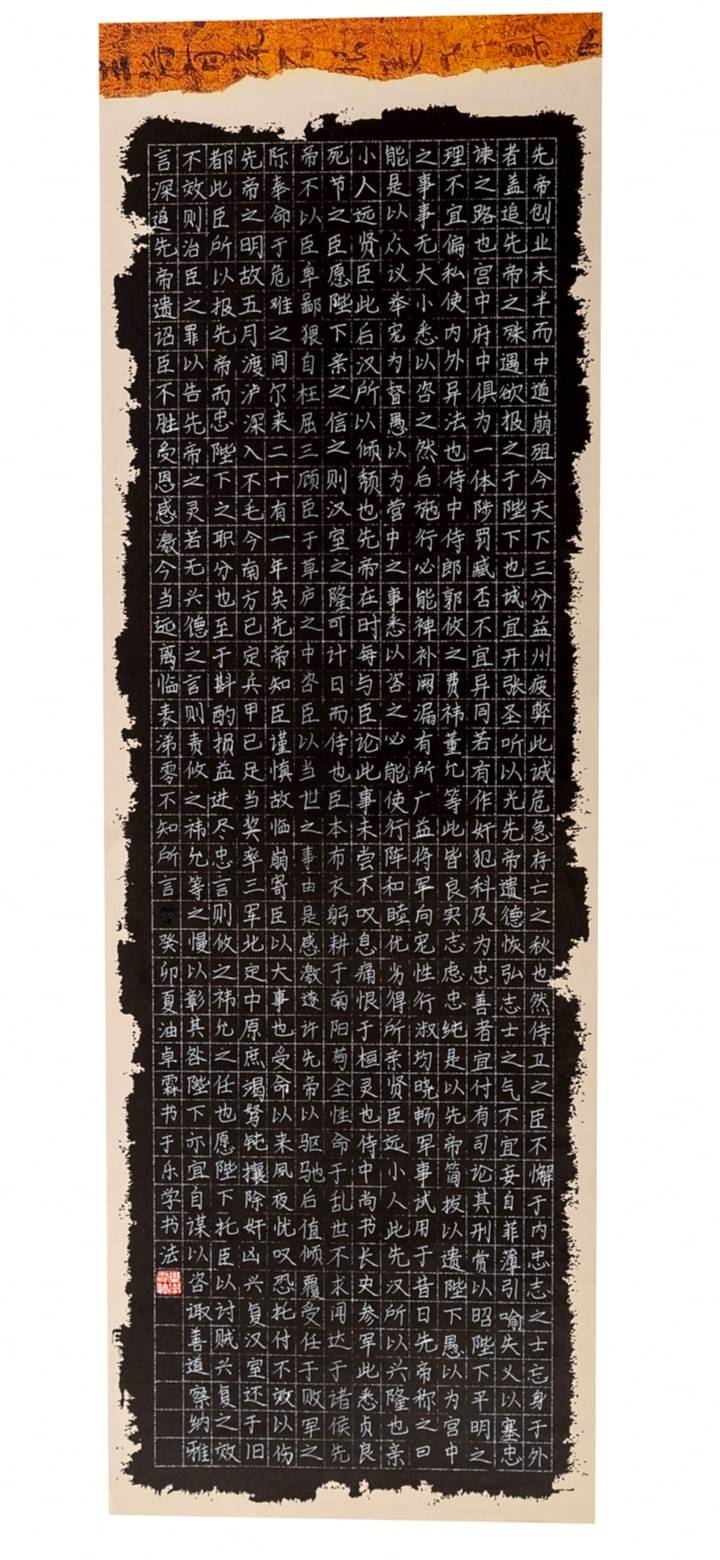 先帝创业未半而中道崩殂今天下三分益州疲弊此诚危急存亡之秋也然侍卫之臣不懈于内忠志之士忘身于外
者盖追先帝之殊遇欲报之于陛下也诚宜开张圣听以光先帝遗德恢弘志士之气不宜妄自菲薄引喻失义以塞忠
谏之路也宫中府中俱为一体陟罚臧否不宜异同若有作奸犯科及为忠善者宜付有司论其刑赏以昭陛下平明之
理不宜偏私使内外异法也侍中侍郎郭攸之费祎董允等此皆良实志虑忠纯是以先帝简拔以遗陛下愚以为宫中
之事事无大小悉以咨之然后施行必能裨补阙漏有所广益将军向宠性行淑均晓畅军事试用于昔日先帝称之曰
能是以众议举宠为督愚以为营中之事悉以咨之必能使行阵和睦优劣得所亲贤臣远小人此先汉所以兴隆也亲
小人远贤臣此后汉所以倾颓也先帝在时每与臣论此事未尝不叹息痛恨于桓灵也侍中尚书长史参军此悉贞良
死节之臣愿陛下亲之信之则汉室之隆可计日而侍也臣本布衣躬耕于南阳苟全性命于乱世不求闻达于诸侯先
帝不以臣卑鄙猥自枉屈三顾臣于草庐之中咨臣以当世之事由是感激遂许先帝以驱驰后值倾覆受任于败军之
际奉命于危难之间尔来二十有一年矣先帝知臣谨慎故临崩寄臣以大事也受命以来夙夜忧叹恐托付不效以伤
先帝之明故五月渡泸深入不毛今南方已定兵甲已足当奖率三军北定中原庶竭驽钝攘除奸凶兴复汉室还于旧
都此臣所以报先帝而忠陛下之职分也至于斟酌损益进尽忠言则攸之祎允之任也愿陛下托臣以讨贼兴复之效
不效则治臣之罪以告先帝之灵若无兴德之言则责攸之祎允等之慢以彰其咎陛下亦宜自谋以咨诹善道察纳雅
言深追先帝遗诏臣不胜受恩感激今当远离临表涕零不知所言 癸卯夏油卓霖书于乐学书法